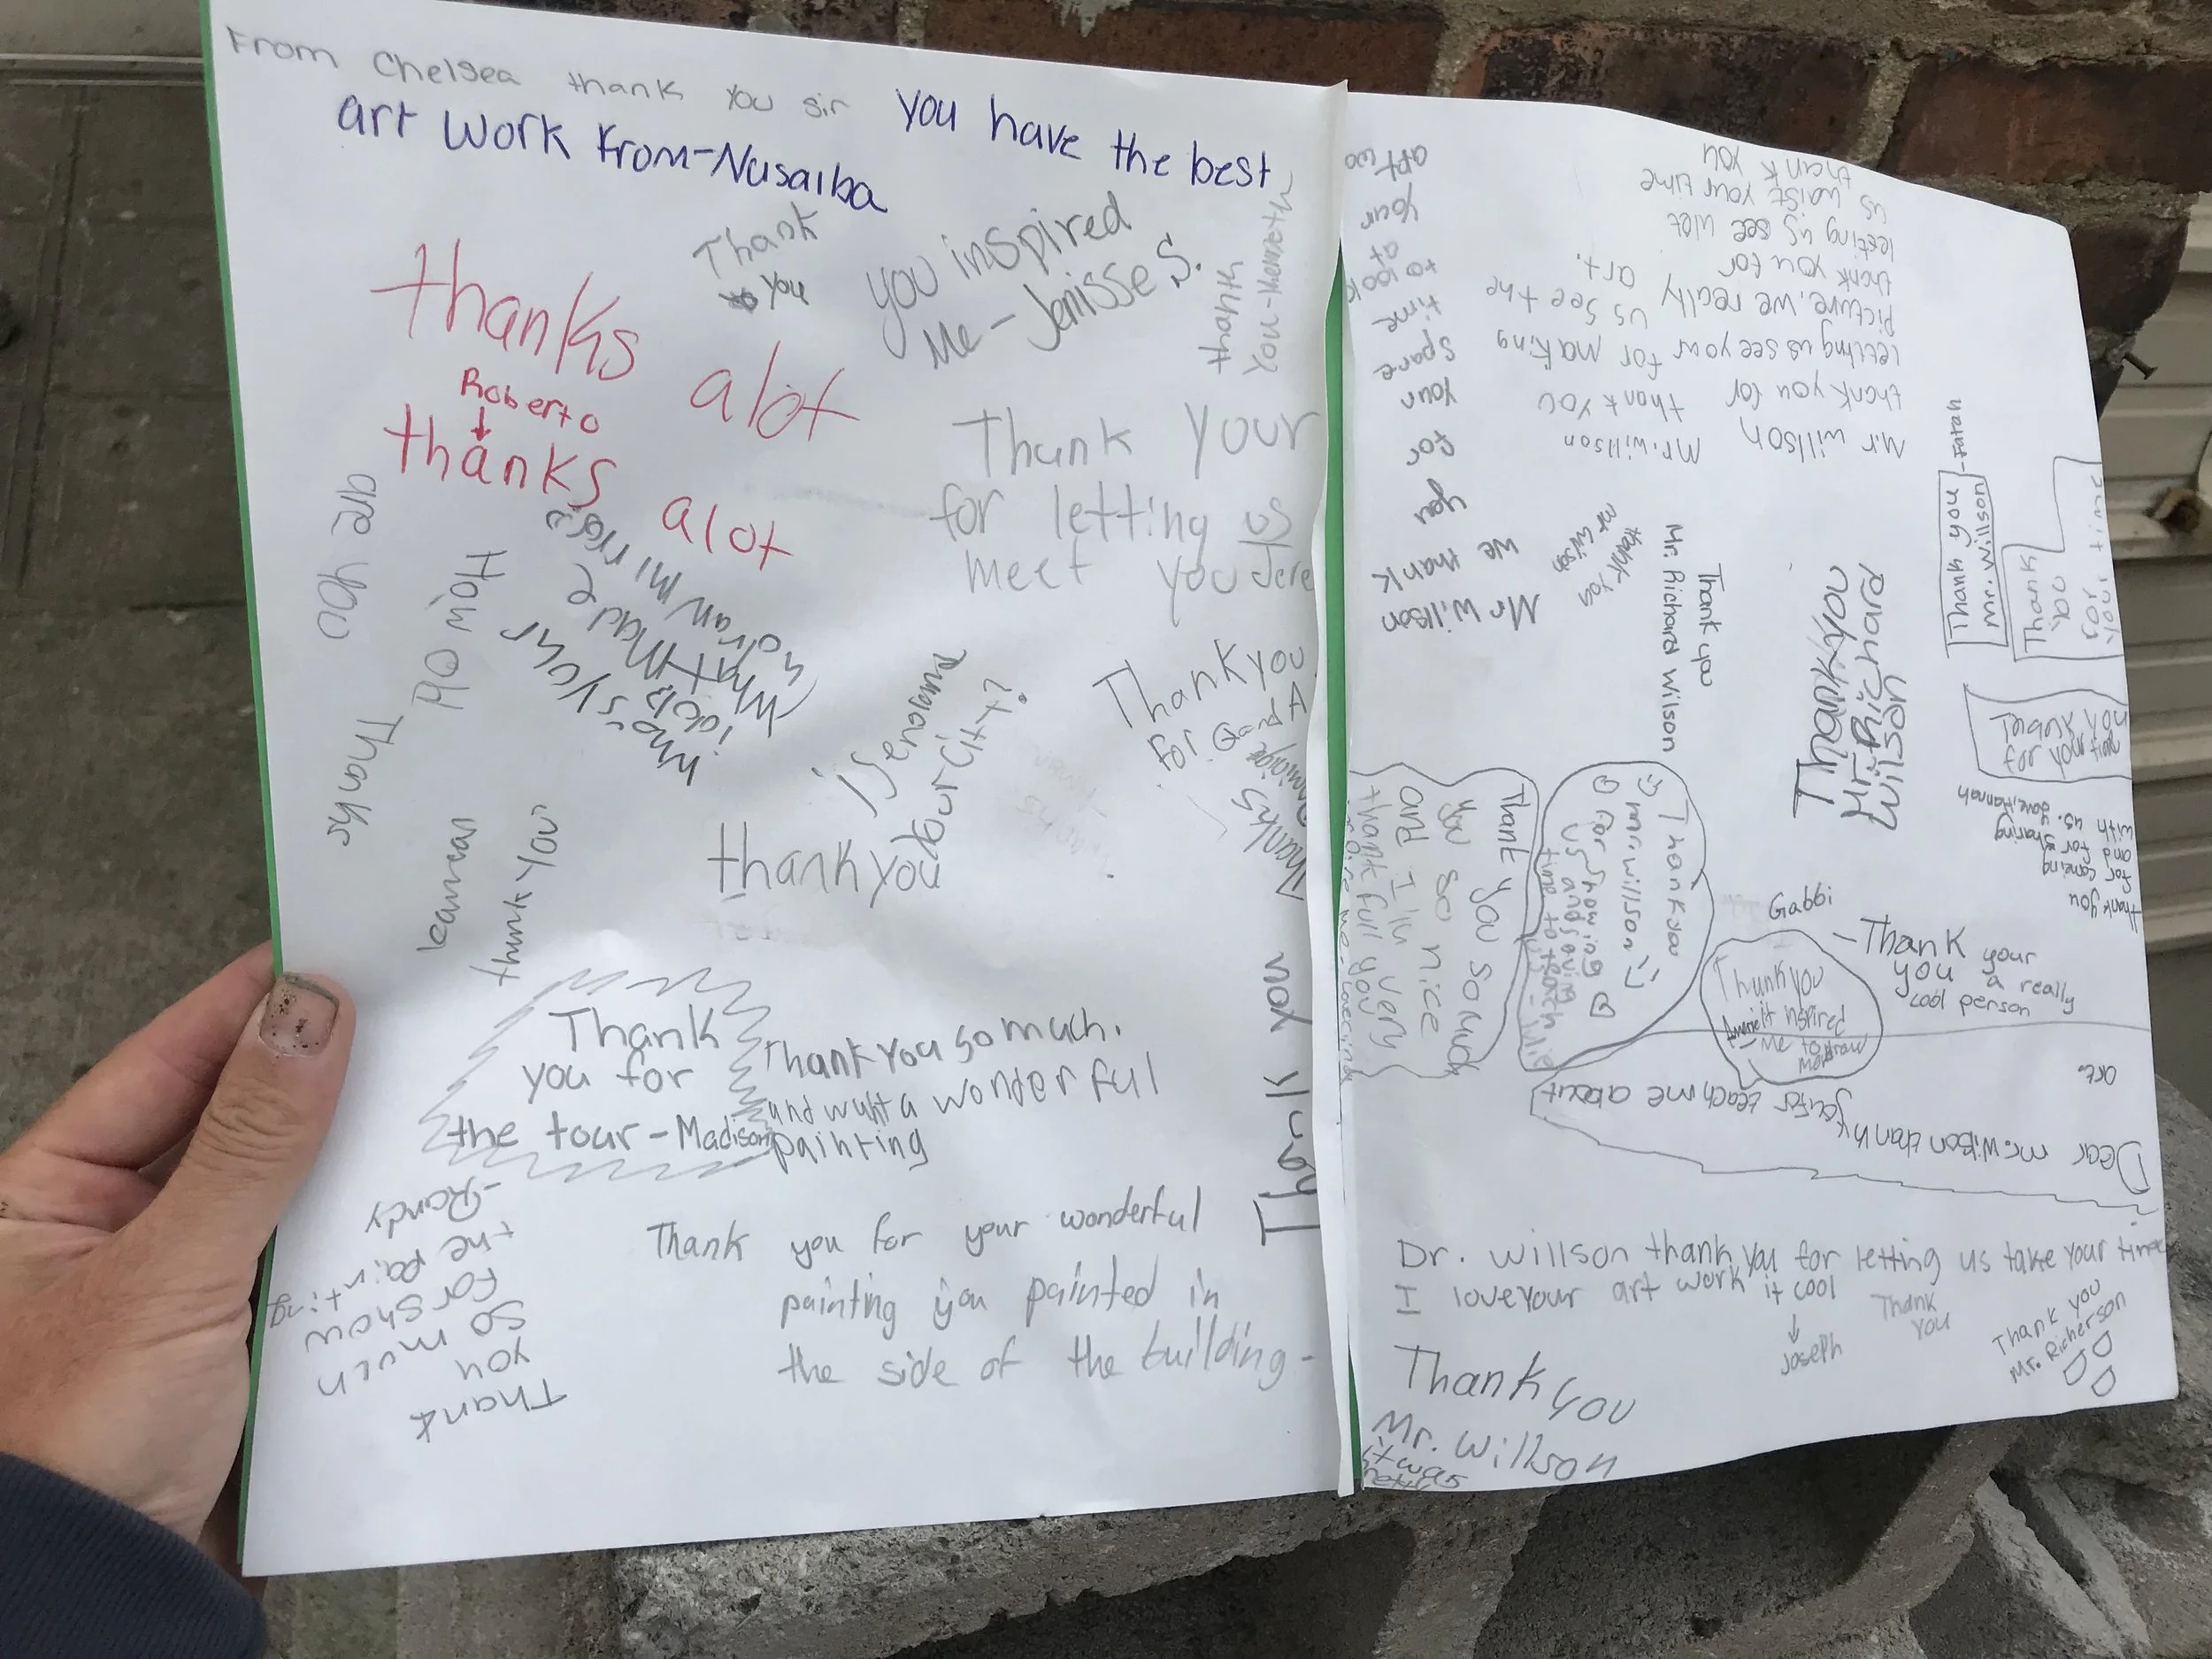 From Chelsea thank you sir
you have the best
art work from-Nusaiba
Thank
you
you inspired
Me - Jenisse S.
thank
you-Kenneth
thanks alot
Roberto
thanks alot
Thank your
for letting us
meet you
How old
are you
Thanks
What
is your
thank you
your city?
Thank you
for
Thanks
thank you
Thank
you for
the tour - Madison
Thank you so much.
and what a wonderful
painting
Thank
you
so much
for show
the painting
-Randy
Thank you for your wonderful
painting you painted in
the side of the building-
Thank you
Mr willson
we thank
you
for
your
spare
time
to look
at
your
art wo
Mr willson
thank you for
letting us see your
picture. we really
thank you for
letting us see
us waist your time
thank you
Mr. willson
thank you
for making
us see the
art.
thank you
mr wilson
Thank you
Mr. Richard Wilson
Thank you
Mr. Richard
Wilson
Thank you
mr. willson
-Farah
Thank
you
for
your time
Thank you
for
thank you
for coming
and for sharing
with us.
Thank you
mr. willson :)
for showing
us and
time to teach
Thank
you so much
you so nice
and I'm
thank full very
Gabbi
- Thank
you
your
a really
cool person
Thank you
it inspired
me to draw
more
Dear mr. wilson thank
you for teach me about
art.
Dr. willson thank you for letting us take your time
I love your art work it cool
Joseph
Thank
you
Thank you
Mr. Richerson
Thank you
Mr. Willson
it was